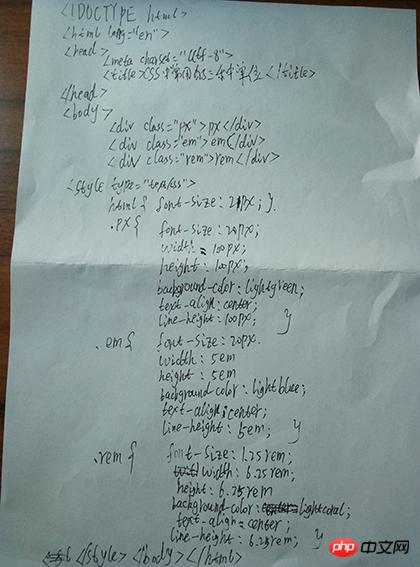 <!DOCTYPE html>
<html lang="en">
<head>
<meta charset="Utf-8">
<title>CSS中常用的三个中单位</title>
</head>
<body>
<div class="px">px</div>
<div class="em">em</div>
<div class="rem">rem</div>
<style type="text/css">
html{ font-size: 20px; }
.px{ font-size: 20px;
width = 100px;
height: 100px;
background-color: lightgreen;
text-align: center;
line-height: 100px; }
.em{ font-size: 20px.
width: 5em
height: 5em
background-color: lightblue;
text-align: center;
line-height: 5em; }
.rem{ font-size: 1.25rem;
width: 6.25rem;
height: 6.25rem
background-color: lightcoral;
text-align = center;
line-height: 6.25rem; }
</style> </body> </html>
php 中文网